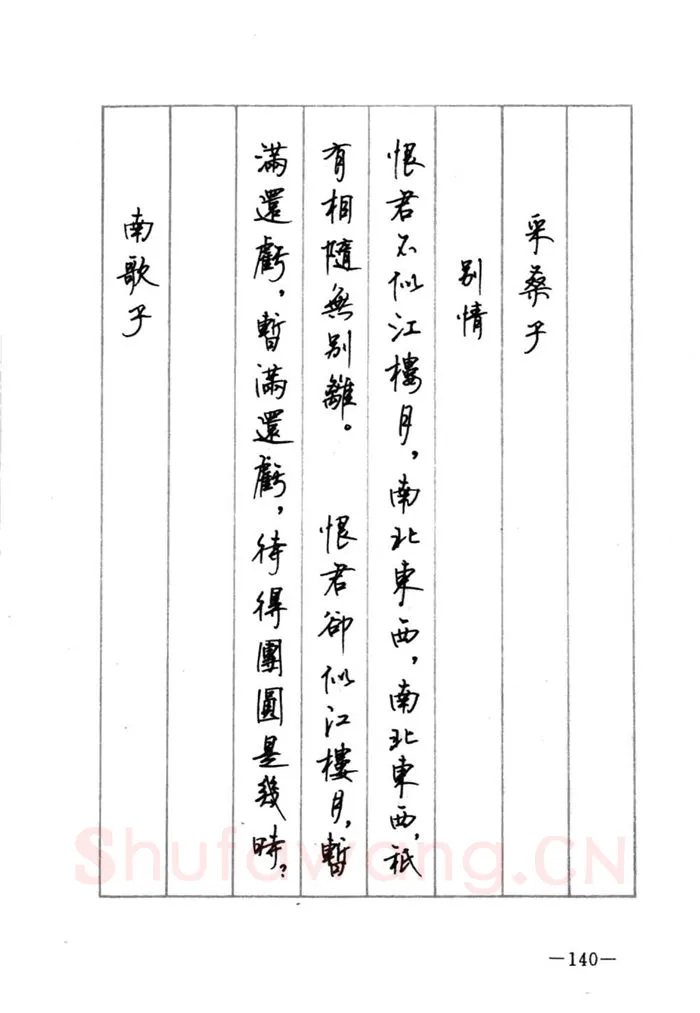 采桑子
别情
恨君不似江樓月，南北東西，南北東西，祇
有相隨無别離。　恨君卻似江樓月，暫
滿還虧，暫滿還虧，待得團圓是幾時？
南歌子
Shufawang.CN
—140—